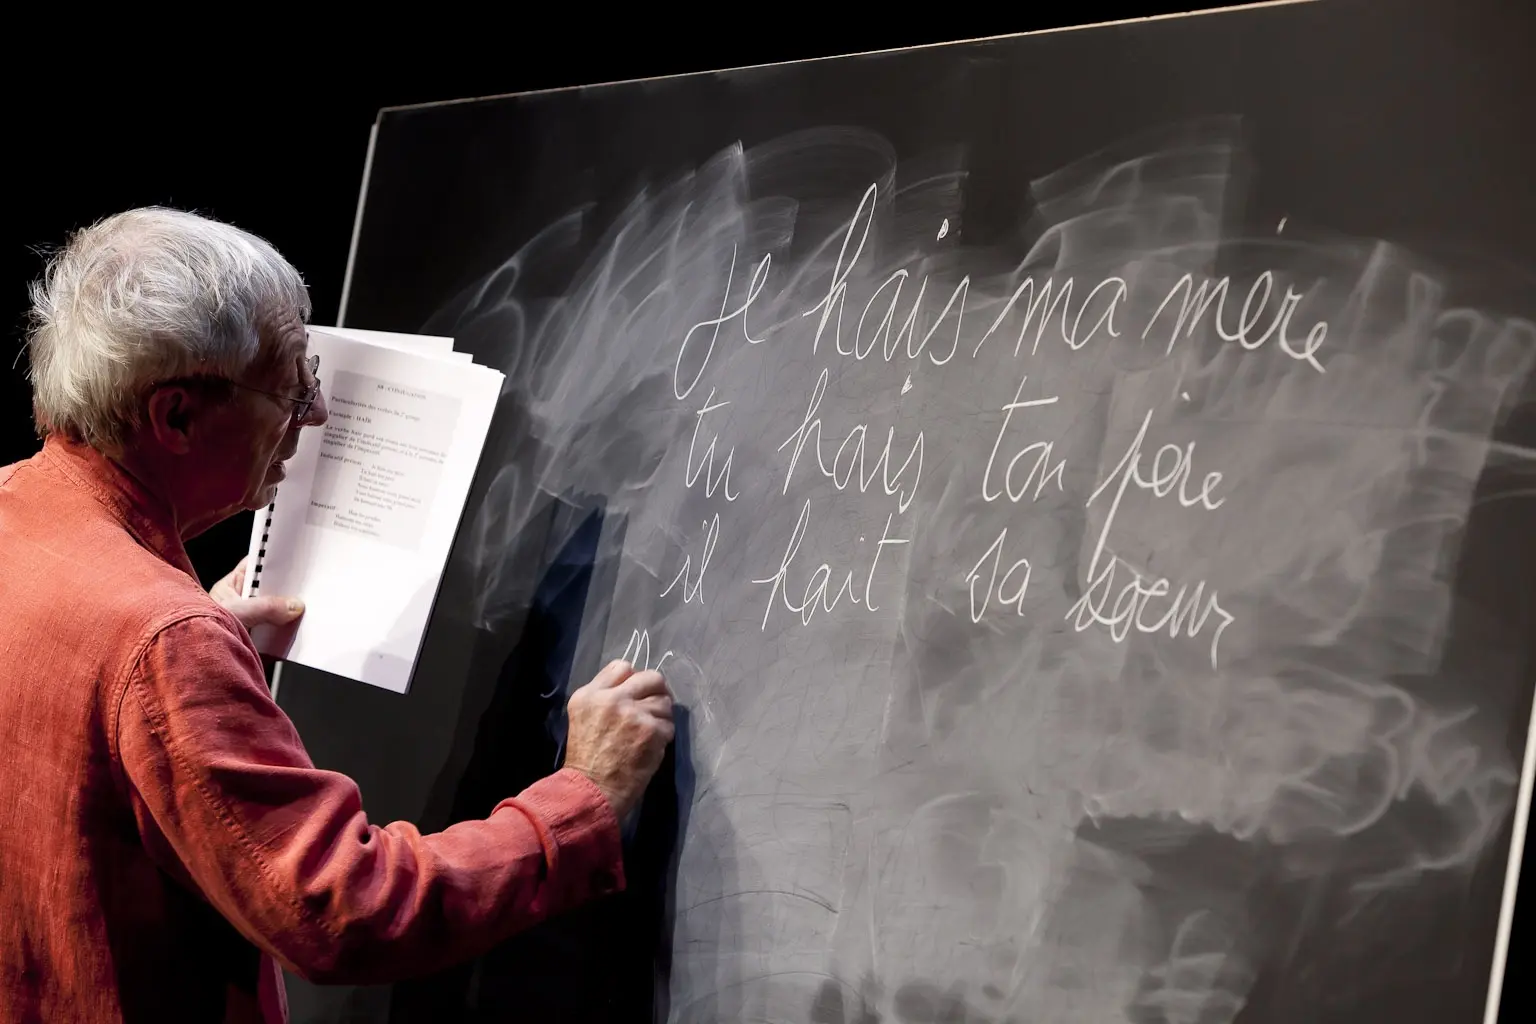 je hais ma mère
tu hais ton père
il hait sa soeur
no
88 - CONJUGAISON
Particularités des verbes du 2e groupe
Exemple : HAÏR
Le verbe haïr perd son tréma aux trois personnes du
singulier de l'indicatif présent, et à la 2e personne du
singulier de l'impératif.
Indicatif présent :
Impératif :